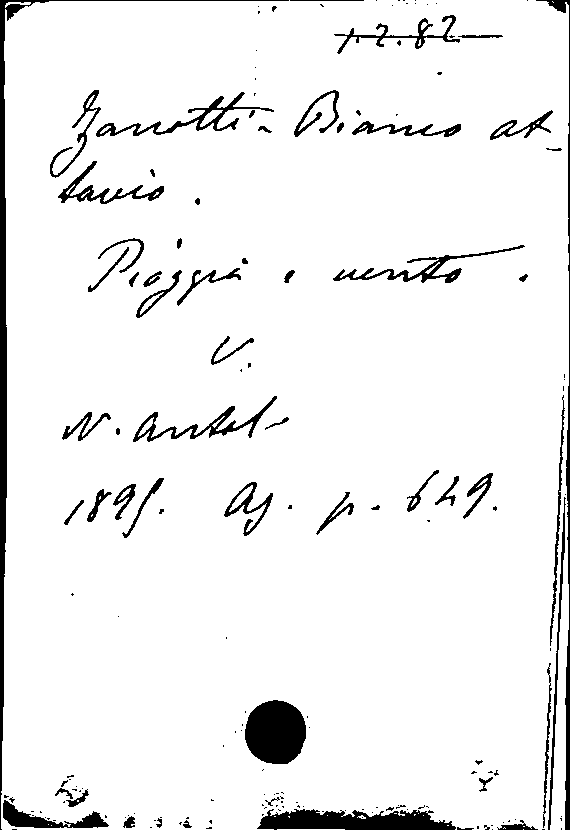 1.2.82
Zanotti-Bianco Ot-
tavio.
Pioggia e vento.
V.
N. Antol-
1895. Ag. p. 649.